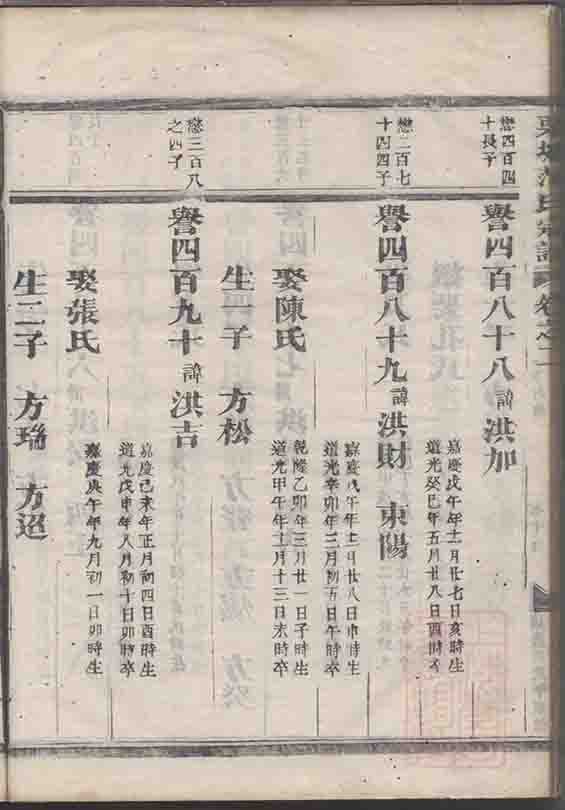 氏宗譜 卷之二
懋四百四
十長子
譽四百八十八 諱 洪加
嘉慶戊午年十二月廿七日亥時生
道光癸巳年五月廿八日酉時
懋二百七
十四四子
譽四百八十九 諱 洪財 東陽
嘉慶戊午年十二月廿八日申時生
道光辛卯年三月初五日午時卒
娶陳氏
乾隆乙卯年三月廿一日子時生
道光甲午年十二月十三日未時卒
生一子 方松
懋三百八
之四子
譽四百九十 諱 洪吉
嘉慶己未年正月初四日酉時生
道光戊申年八月初十日卯時卒
娶張氏
嘉慶庚午年九月初一日卯時生
生二子 方瑞 方迢